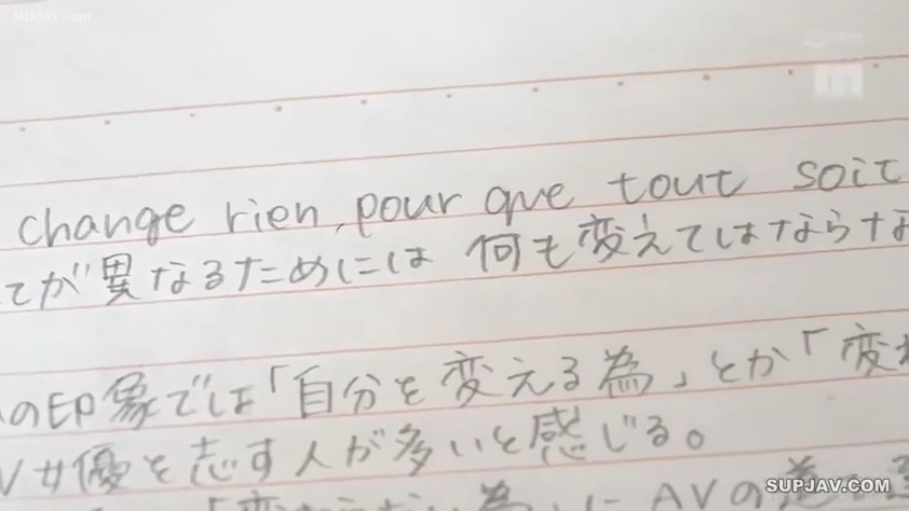 MissAV.com
change rien, pour que tout soit
てが異なるためには 何も変えてはならな
の印象では「自分を変える為」とか「変わ
V女優を志す人が多いと感じる。
「変わらない為」に AVの道
SUPJAV.COM